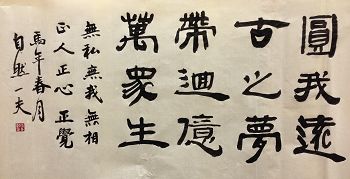 圓我遠
古之夢
帶迴億
萬眾生
無私無我無相
正人正心正覺
馬年春月
自然一夫